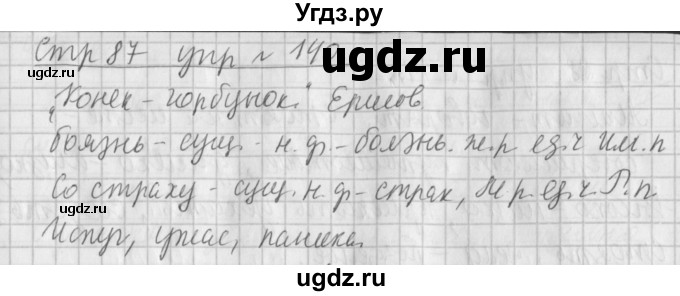 Угдз.ру
Стр 87 упр № 14
ugdz.ru
ugdz.ru
"Конек-горбунок" Ершов
Боязнь - сущ. - н.ф. - боязнь. ж.р ед.ч Им.п
Со страху - сущ. н.ф - страх, М р. ед.ч. Р.п
ugdz.ru
Испуг, ужас, паника.
ugdz.ru
ugdz.ru